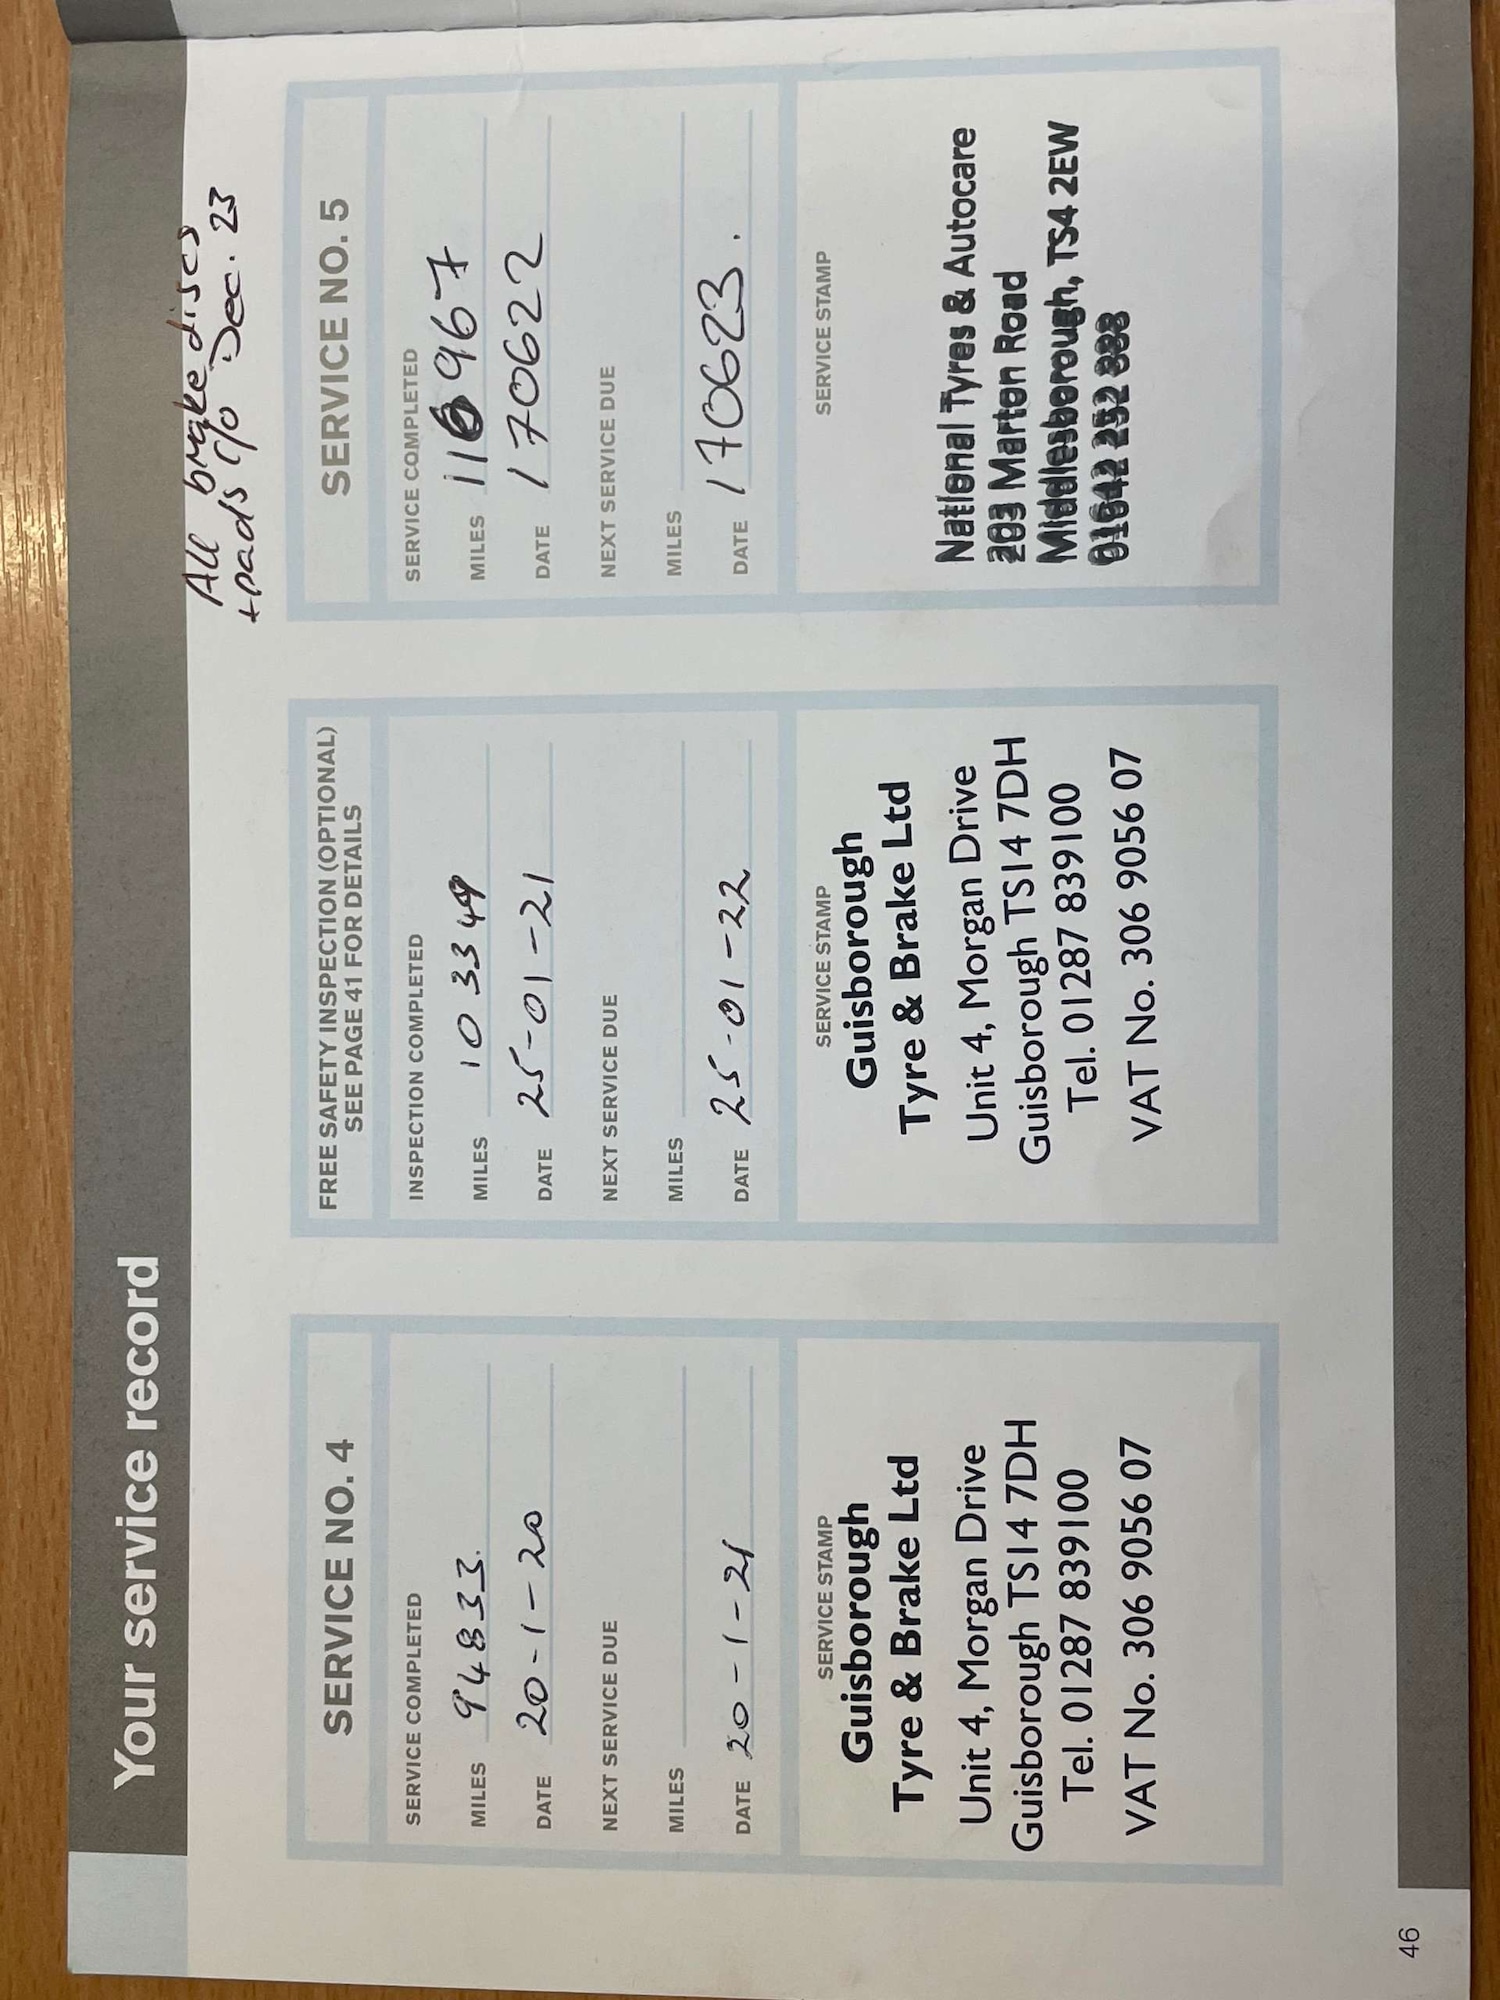 Your service record
All brake discs
+ pads c/o Dec. 23
SERVICE NO. 4
SERVICE COMPLETED
MILES 94833.
DATE 20-1-20
NEXT SERVICE DUE
MILES
DATE 20-1-21
SERVICE STAMP
Guisborough
Tyre & Brake Ltd
Unit 4, Morgan Drive
Guisborough TS14 7DH
Tel. 01287 839100
VAT No. 306 9056 07
FREE SAFETY INSPECTION (OPTIONAL)
SEE PAGE 41 FOR DETAILS
INSPECTION COMPLETED
MILES 103349
DATE 25-01-21
NEXT SERVICE DUE
MILES
DATE 25-01-22
SERVICE STAMP
Guisborough
Tyre & Brake Ltd
Unit 4, Morgan Drive
Guisborough TS14 7DH
Tel. 01287 839100
VAT No. 306 9056 07
SERVICE NO. 5
SERVICE COMPLETED
MILES 116967
DATE 170622
NEXT SERVICE DUE
MILES
DATE 170623.
SERVICE STAMP
National Tyres & Autocare
203 Marton Road
Middlesborough, TS4 2EW
01642 252 888
46